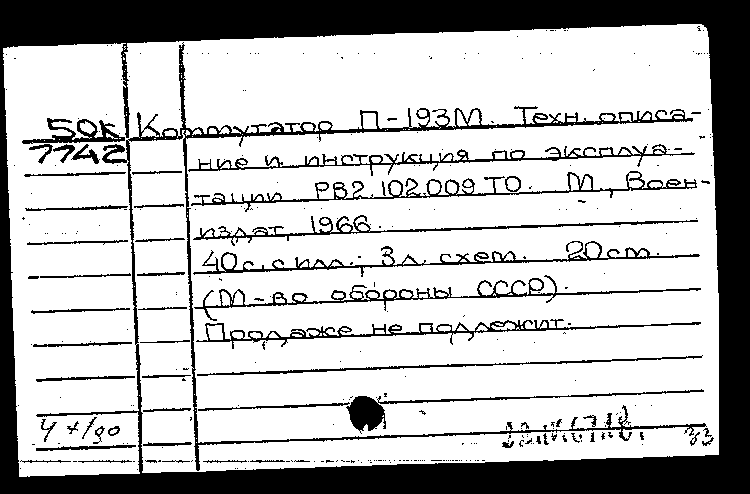 50К Коммутатор П-193М. Техн. описа-
7742 ние и инструкция по эксплуа-
тации РВ2.102.009 ТО. М., Воен-
издат, 1966.
40с. с илл.; 3л. схем. 20см.
(М-во обороны СССР).
Продаже не подлежит.
33